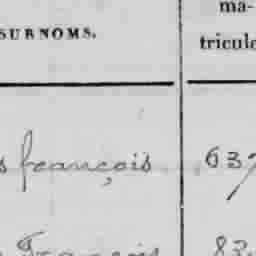 SURNOMS.
ma-
tricule
s françois
637
François
83